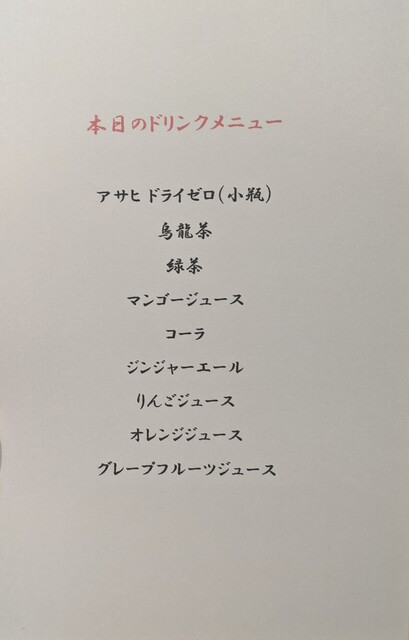 本日のドリンクメニュー
アサヒ ドライゼロ(小瓶)
烏龍茶
緑茶
マンゴージュース
コーラ
ジンジャーエール
りんごジュース
オレンジジュース
グレープフルーツジュース